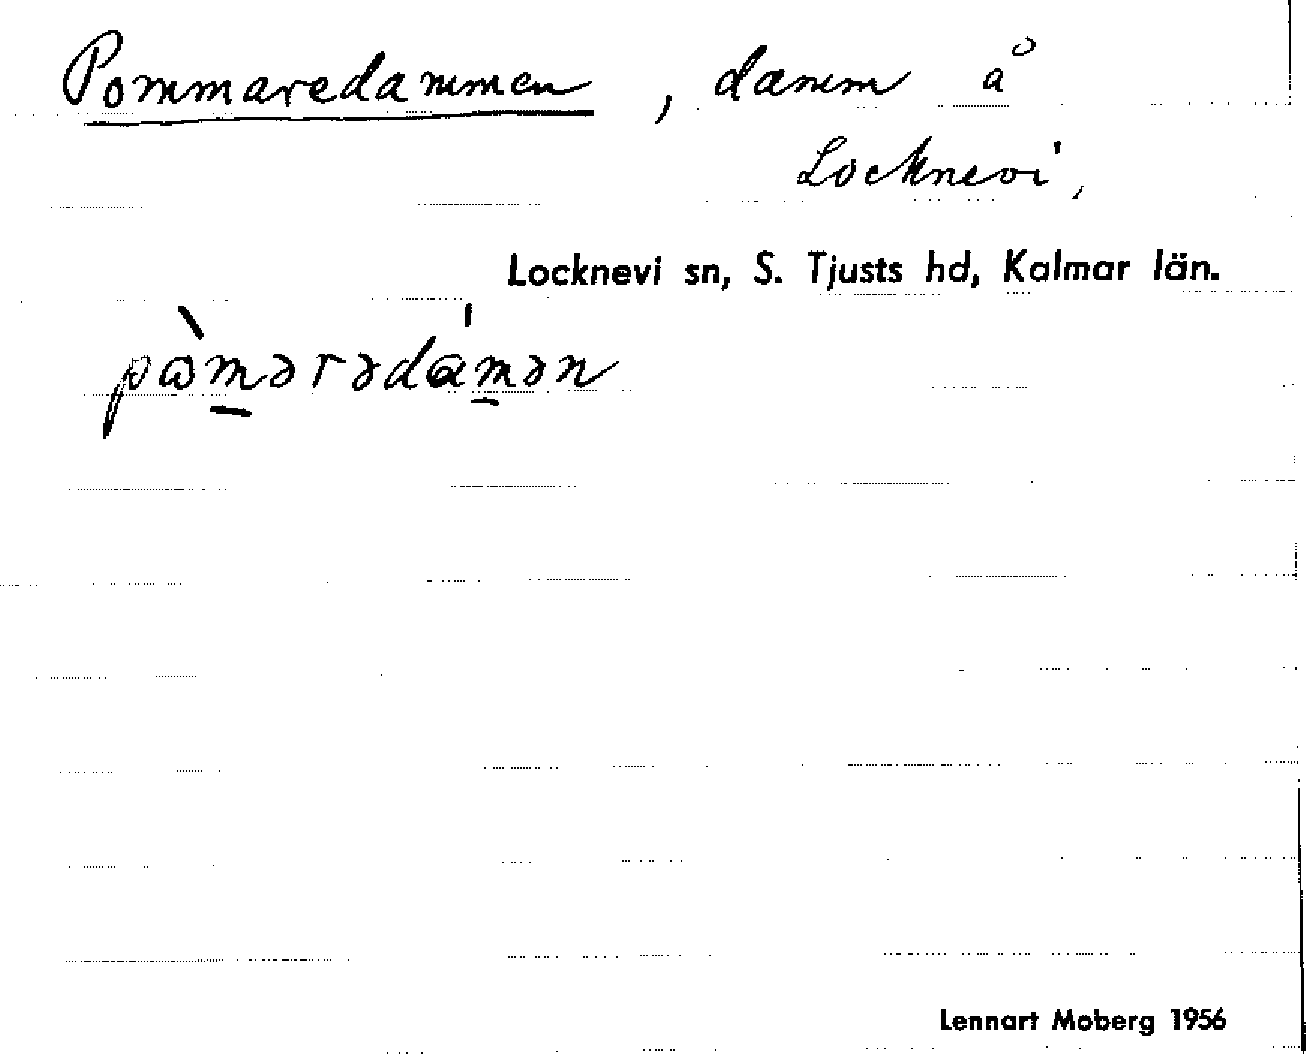 Pommaredammen, damm å
Locknevi,
Locknevi sn, S. Tjusts hd, Kalmar län.
pὼm̲ərədám̲ən
Lennart Moberg 1956